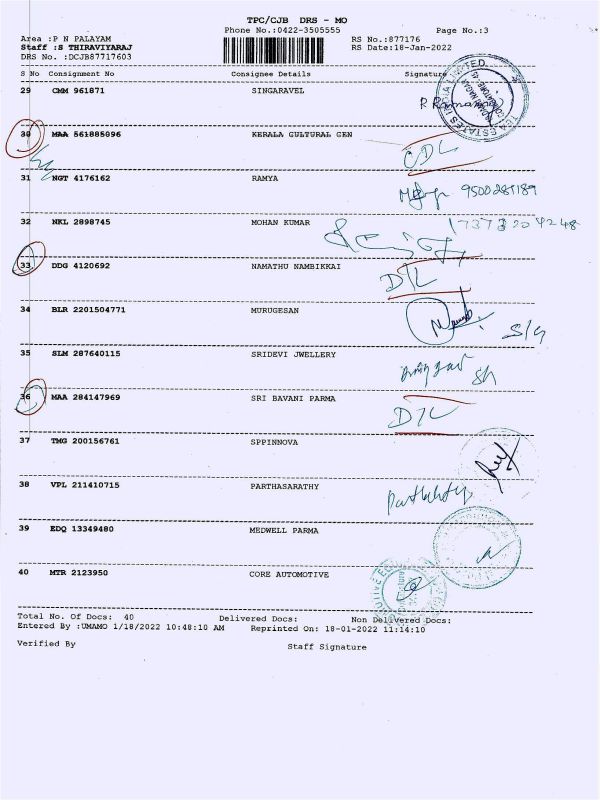 TPC/CJB DRS - MO
Phone No.:0422-3505555 Page No.:3
Area :P N PALAYAM RS No.:877176
Staff :S THIRAVIYARAJ RS Date:18-Jan-2022
DRS No. :DCJB87717603
S No Consignment No Consignee Details Signature
29 CMM 961871 SINGARAVEL
30 MAA 561885096 KERALA GULTURAL GEN
CDL
31 NGT 4176162 RAMYA
9500281189
32 NKL 2898745 MOHAN KUMAR
33 DDG 4120692 NAMATHU NAMBIKKAI
DTL
34 BLR 2201504771 MURUGESAN
35 SLM 287640115 SRIDEVI JWELLERY
36 MAA 284147969 SRI BAVANI PARMA
DTL
37 TMG 200156761 SPPINNOVA
38 VPL 211410715 PARTHASARATHY
39 EDQ 13349480 MEDWELL PARMA
40 MTR 2123950 CORE AUTOMOTIVE
Total No. Of Docs: 40 Delivered Docs: Non Delivered Docs:
Entered By :UMAMO 1/18/2022 10:48:10 AM Reprinted On: 18-01-2022 11:14:10
Verified By Staff Signature